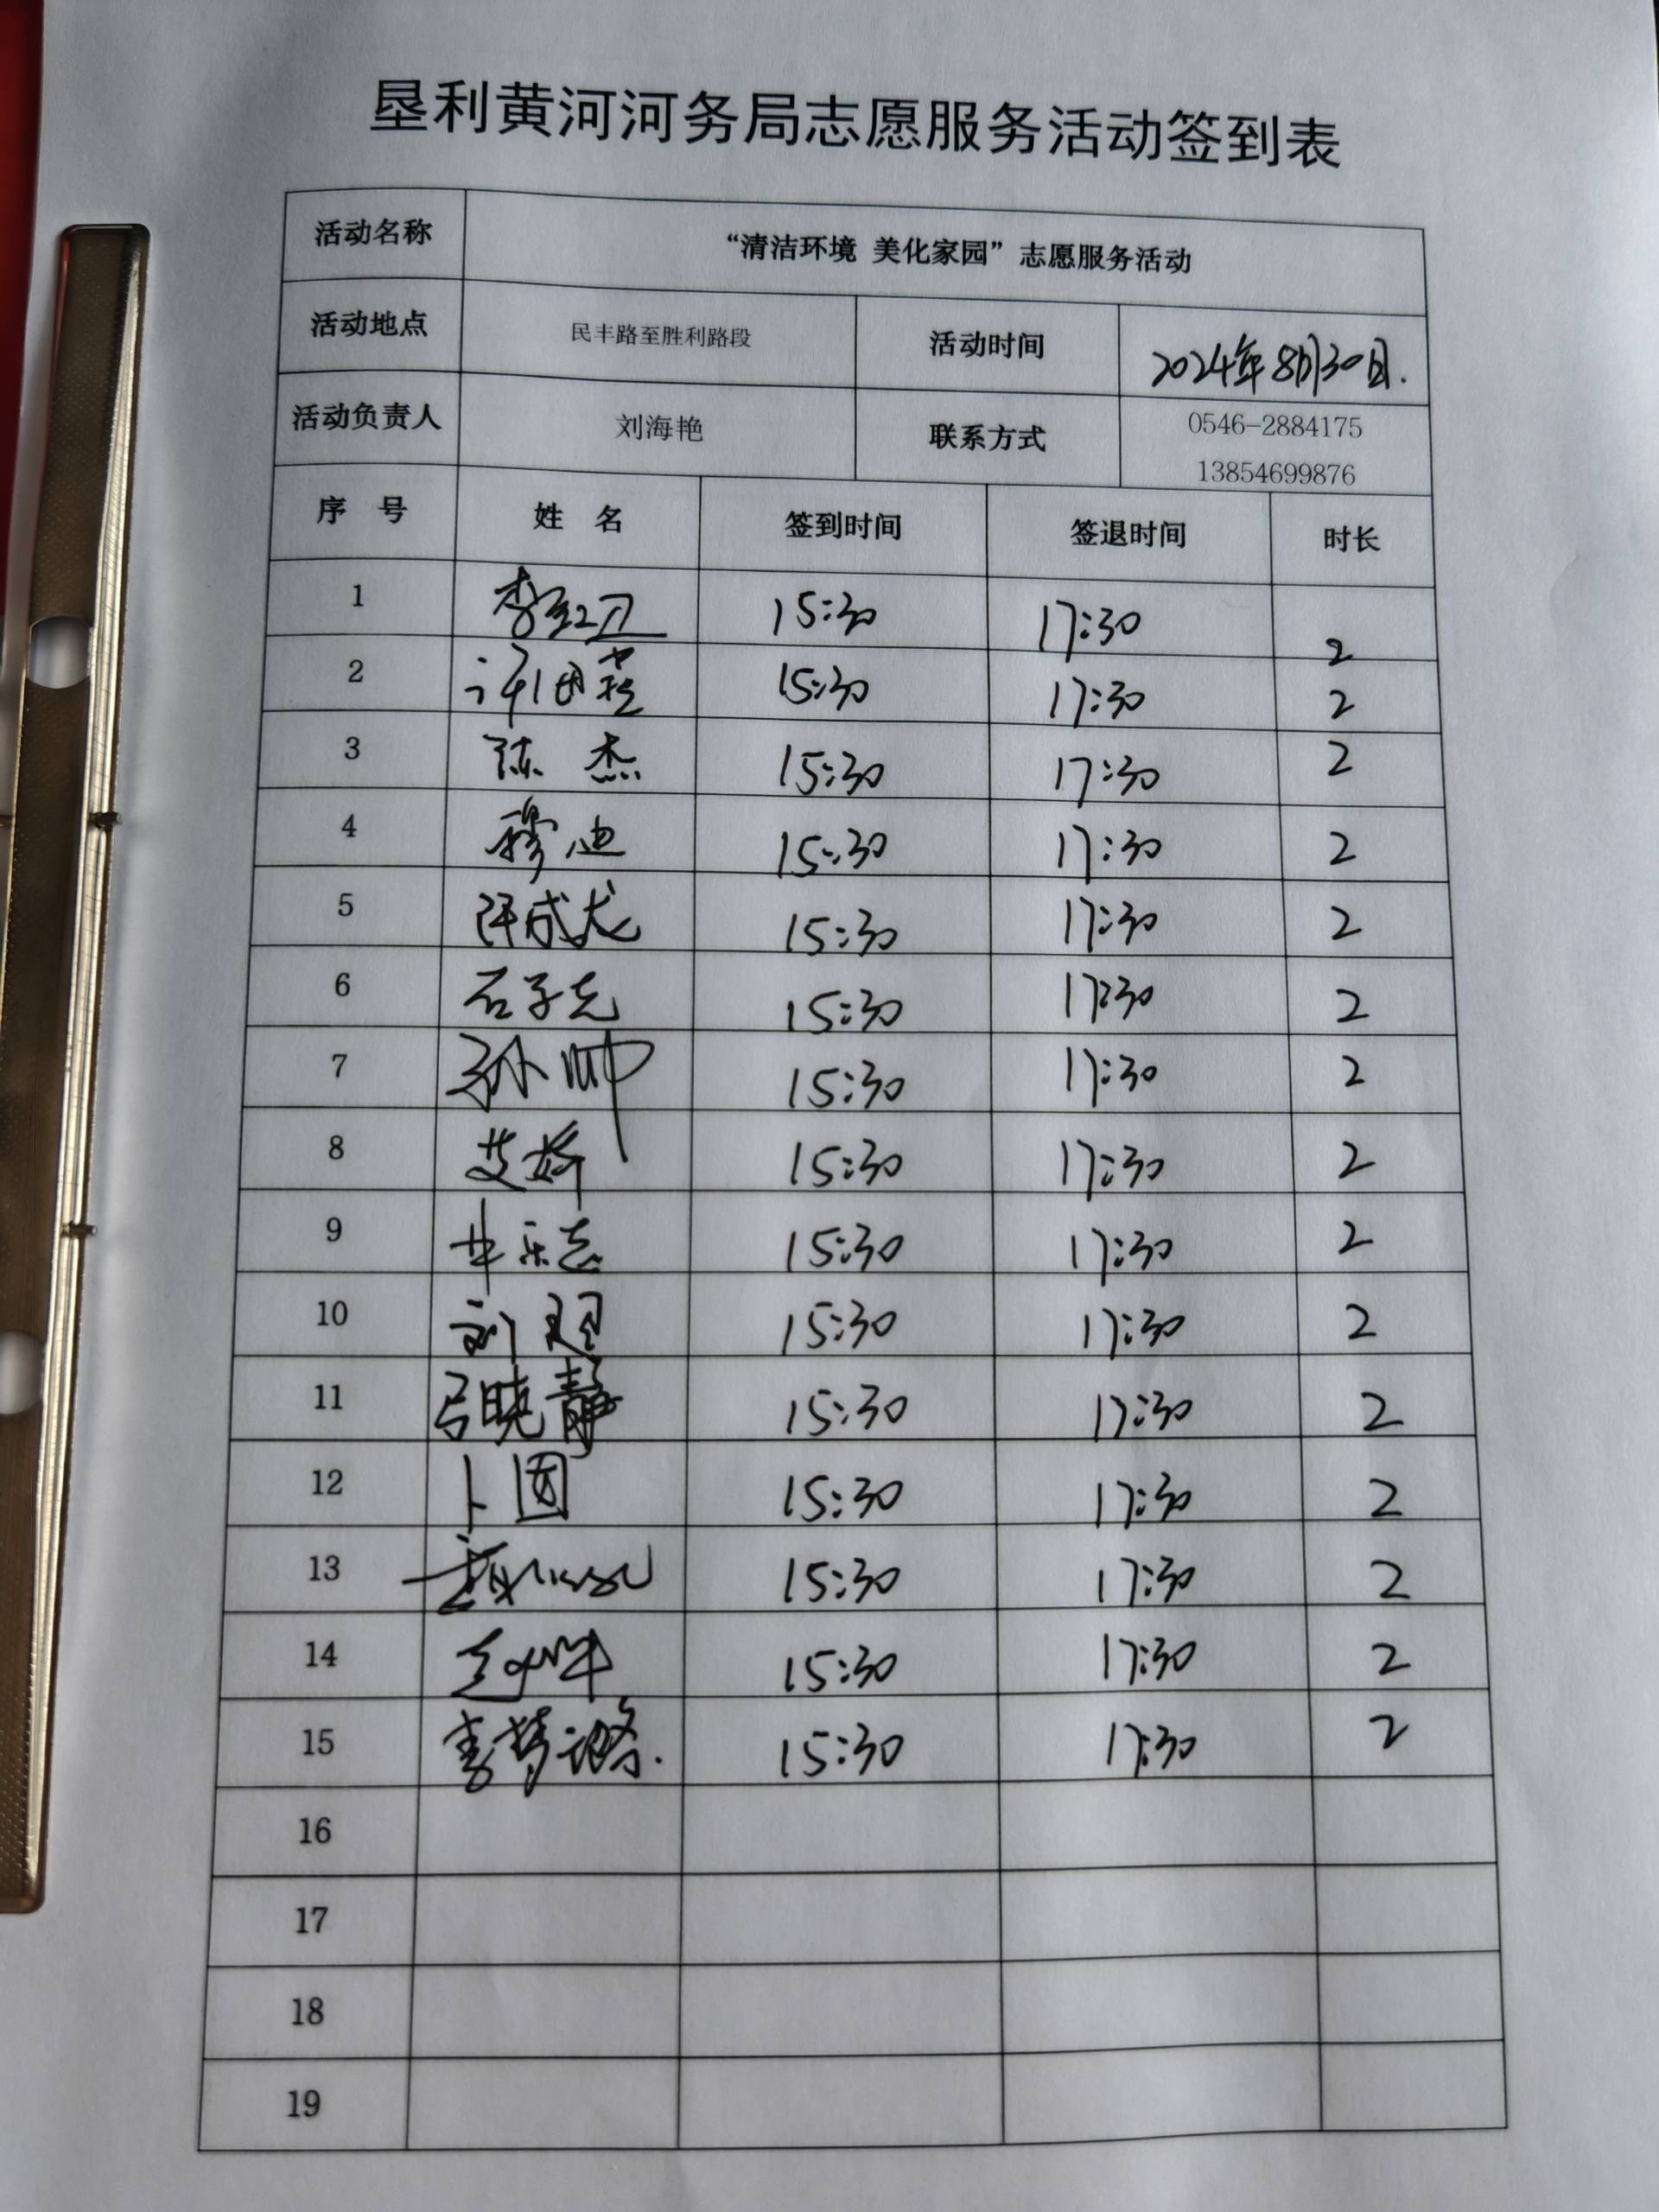 垦利黄河河务局志愿服务活动签到表
活动名称 “清洁环境 美化家园”志愿服务活动
活动地点 民丰路至胜利路段 活动时间 2024年8月30日.
活动负责人 刘海艳 联系方式 0546-2884175
13854699876
序 号 姓 名 签到时间 签退时间 时长
1 李红卫 15:30 17:30 2
2 15:30 17:30 2
3 陈杰 15:30 17:30 2
4 穆迪 15:30 17:30 2
5 15:30 17:30 2
6 15:30 17:30 2
7 孙帅 15:30 17:30 2
8 艾娇 15:30 17:30 2
9 15:30 17:30 2
10 15:30 17:30 2
11 弓晓静 15:30 17:30 2
12 卜茵 15:30 17:30 2
13 15:30 17:30 2
14 15:30 17:30 2
15 李梦璐. 15:30 17:30 2
16
17
18
19